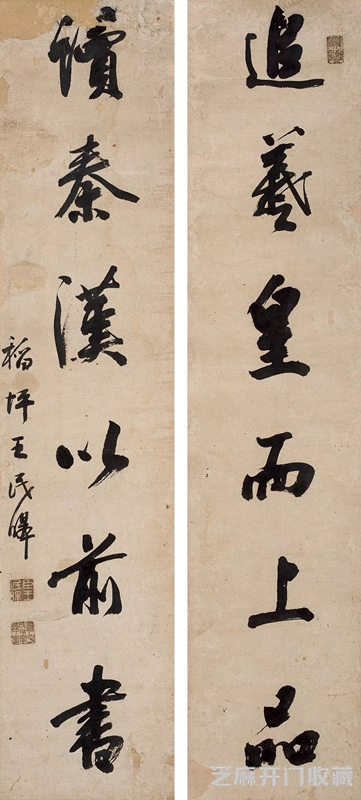 追羲皇而上品
讀秦漢以前書
坪王民皞
芝麻开门收藏